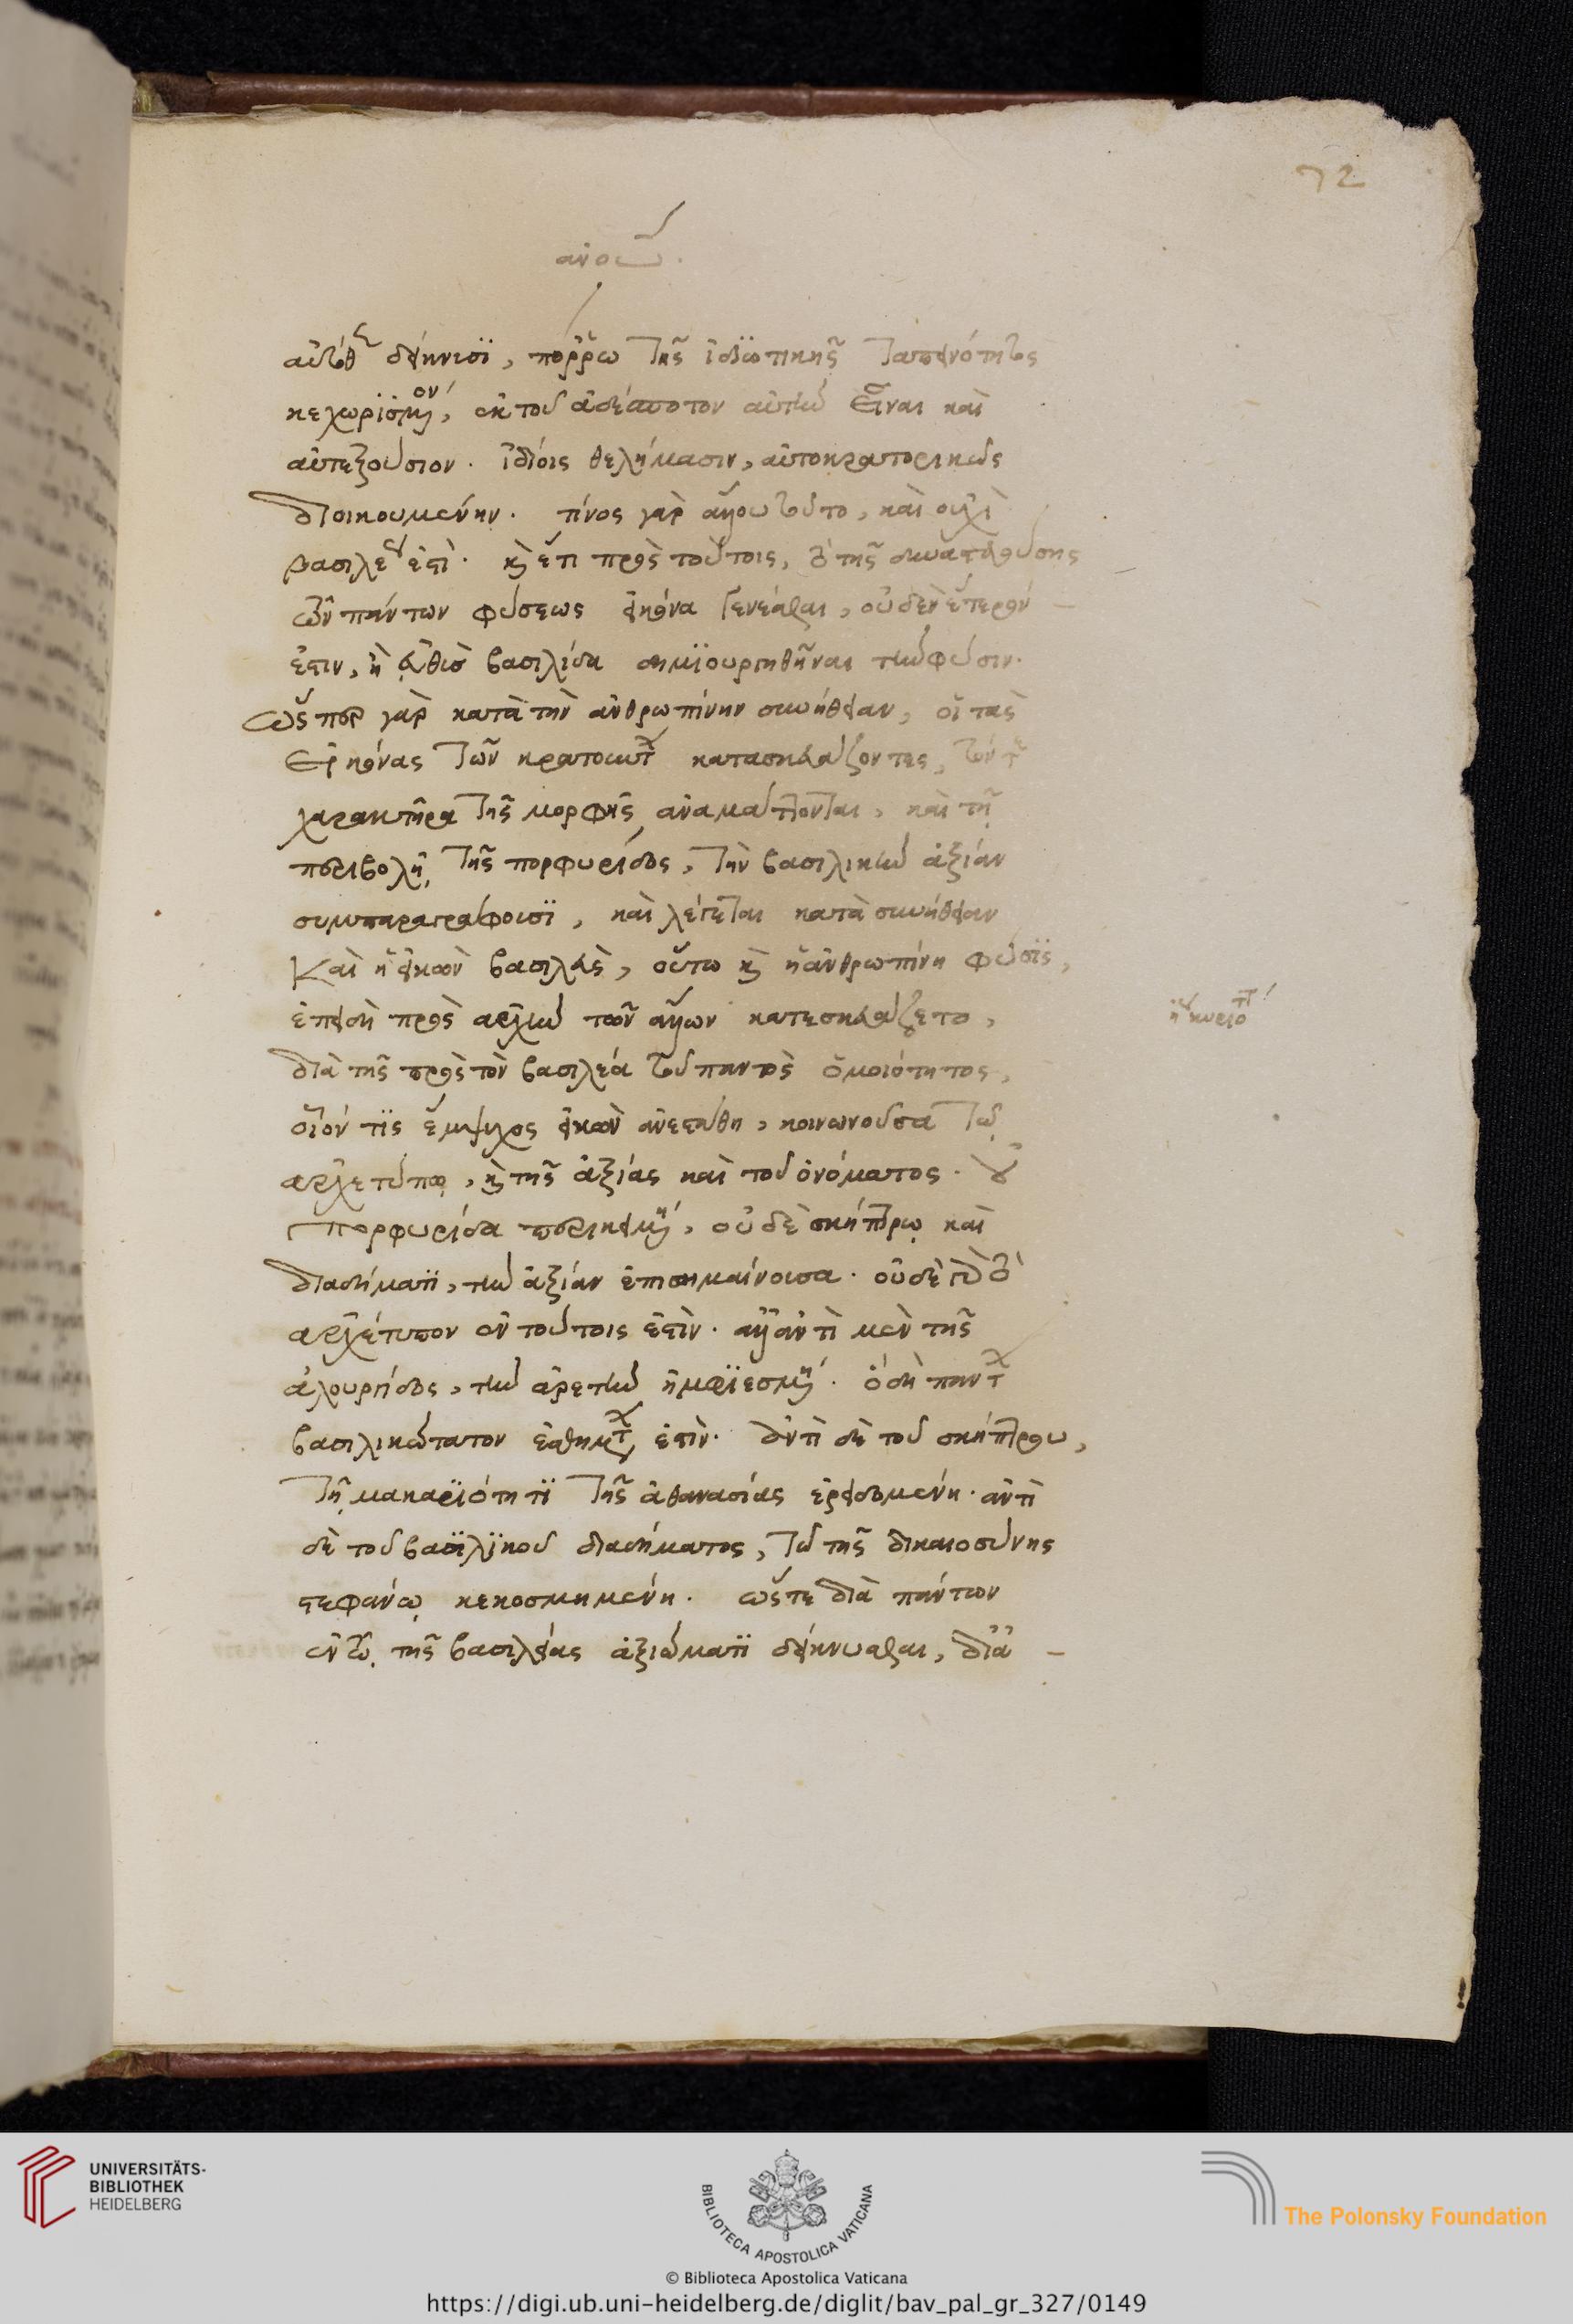 72
ἄνω
αὐτόθεν δείκνυσι, πόῤῥω τῆς ἰδιωτικῆς ταπεινότητος
κεχωρισμένον, ἐκ τοῦ ἀδέσποτον αὐτὴν εἶναι καὶ
αὐτεξούσιον. ἰδίοις θελήμασιν, αὐτοκρατορικῶς
διοικουμένην. τίνος γὰρ ἄλλου τοῦτο, καὶ οὐχὶ
βασιλέως ἐστὶ. καὶ ἔτι πρὸς τούτοις, τὸ τῆς δυναστευούσης
τῶν πάντων φύσεως εἰκόνα γενέσθαι, οὐδὲν ἕτερόν
ἐστιν, ἢ εὐθὺς βασιλίδα δημιουργηθῆναι τὴν φύσιν.
ὥσπερ γὰρ κατὰ τὴν ἀνθρωπίνην συνήθειαν, οἱ τὰς
εἰκόνας τῶν κρατούντων κατασκευάζοντες, τόν τε
χαρακτῆρα τῆς μορφῆς ἀναμάττονται, καὶ τῇ
περιβολῇ τῆς πορφυρίδος, τὴν βασιλικὴν ἀξίαν
συμπαραγράφουσι, καὶ λέγεται κατὰ συνήθειαν
καὶ ἡ εἰκὼν βασιλεὺς, οὕτω καὶ ἡ ἀνθρωπίνη φύσις,
ἐπειδὴ πρὸς ἀρχὴν τῶν ἄλλων κατεσκευάζετο,
διὰ τῆς πρὸς τὸν βασιλέα τοῦ παντὸς ὁμοιότητος,
οἷόν τις ἔμψυχος εἰκὼν ἀνεστάθη, κοινωνοῦσα τῷ
ἀρχετύπῳ, καὶ τῆς ἀξίας καὶ τοῦ ὀνόματος. οὐ
πορφυρίδα περικειμένη, οὐδὲ σκήπτρῳ καὶ
διαδήματι, τὴν ἀξίαν ἐπισημαίνουσα. οὐδὲ γὰρ τὸ
ἀρχέτυπον ἐν τούτοις ἐστὶν. ἀλλ' ἀντὶ μὲν τῆς
ἁλουργίδος, τὴν ἀρετὴν ἠμφιεσμένη. ὃ δὴ πάντων
βασιλικώτατον ἐσθημάτων ἐστὶν. ἀντὶ δὲ τοῦ σκήπτρου,
τῇ μακαριότητι τῆς ἀθανασίας ἐρειδομένη. ἀντὶ
δὲ τοῦ βασιλικοῦ διαδήματος, τῷ τῆς δικαιοσύνης
στεφάνῳ κεκοσμημένη. ὥστε διὰ πάντων
ἐν τῷ τῆς βασιλείας ἀξιώματι δείκνυσθαι, διὰ
UNIVERSITÄTS-
BIBLIOTHEK
HEIDELBERG
BIBLIOTECA APOSTOLICA VATICANA
The Polonsky Foundation
© Biblioteca Apostolica Vaticana
https://digi.ub.uni-heidelberg.de/diglit/bav_pal_gr_327/0149